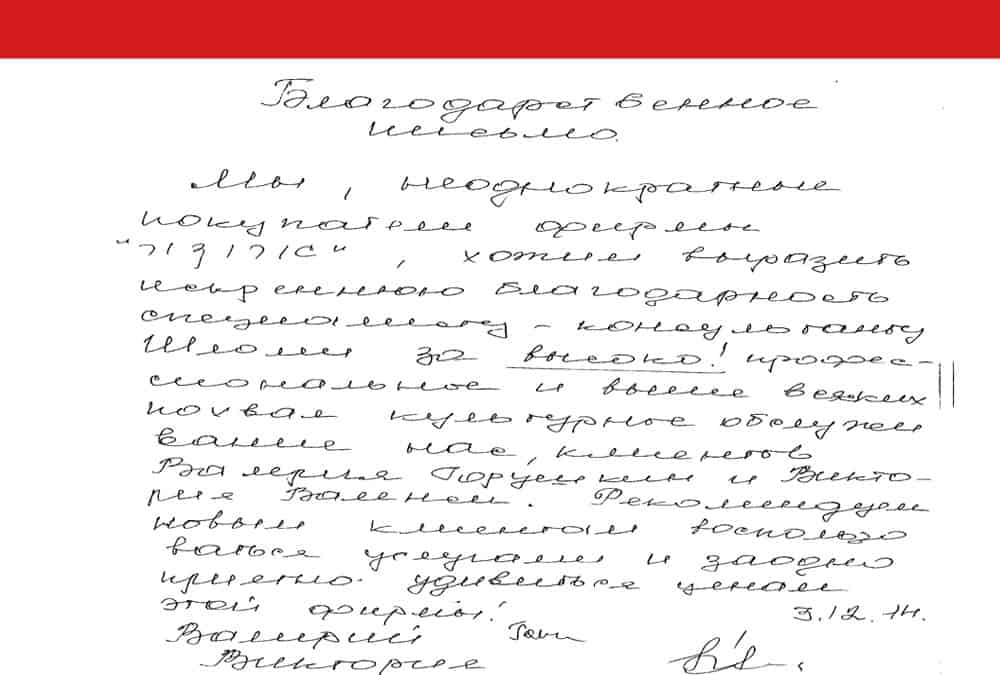 Благодарственное
письмо.
Мы, неоднократные
покупатели фирмы
хотим выразить
искреннюю благодарность
специалисту - консультанту
за высоко! профес-
сиональное и выше всяких
похвал культурное обслужи
вание нас, клиентов
Валерия и Викто-
рия. Рекомендуем
новым клиентам воспользо
ваться услугами и заодно
приятно удивиться ценам
этой фирмы! 3.12.14.
Валерий
Виктория